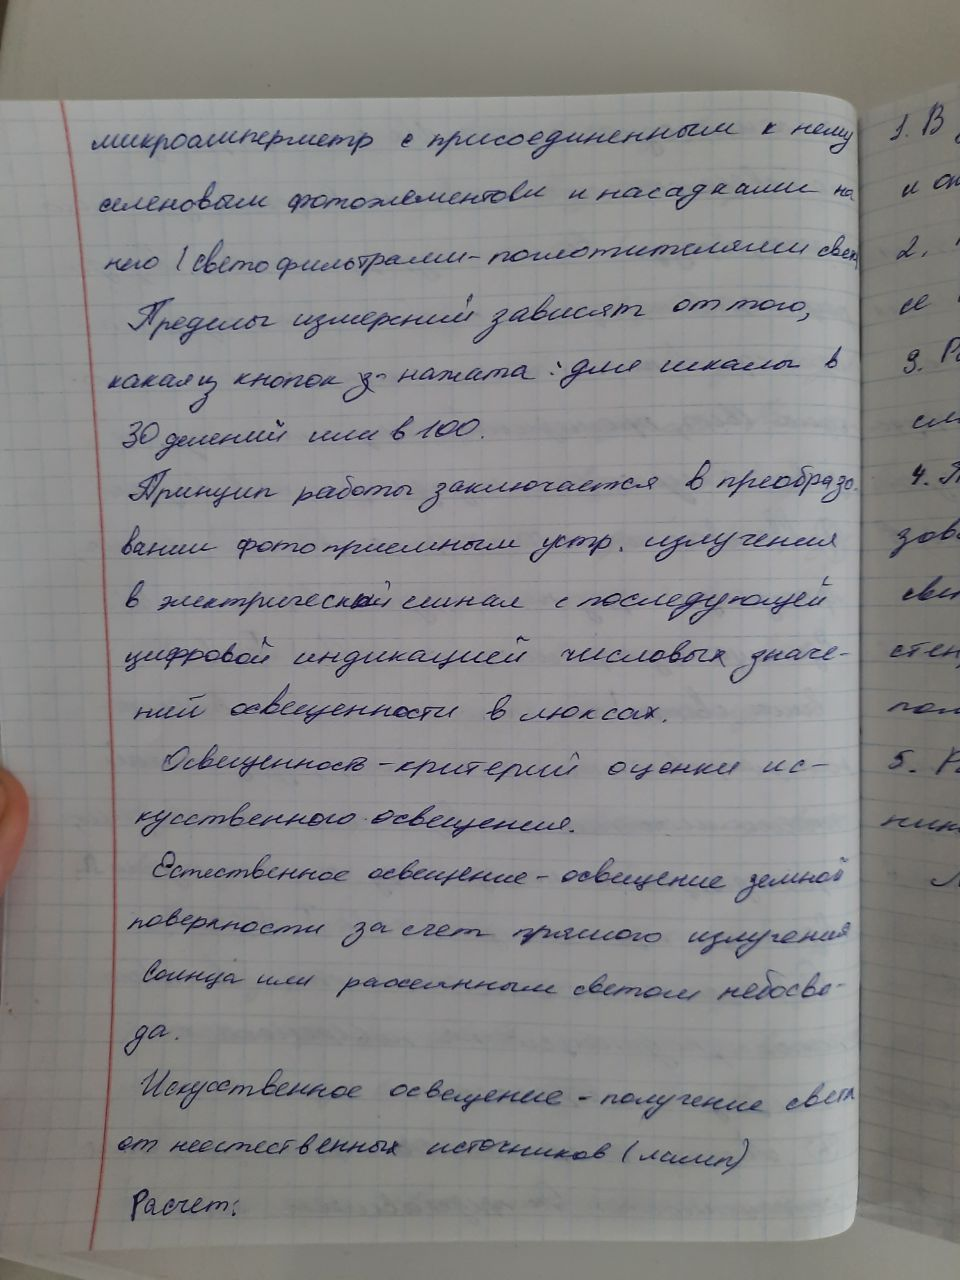 микроамперметр с присоединенным к нему
селеновым фотоэлементом и насадками на
него (светофильтрами-поглотителями света
Пределы измерений зависят от того,
какая из кнопок нажата: для шкалы в
30 делений или в 100.
Принцип работы заключается в преобразо-
вании фотоприемным устр. излучения
в электрический сигнал с последующей
цифровой индикацией числовых значе-
ний освещенности в люксах.
Освещенность - критерий оценки ис-
кусственного освещения.
Естественное освещение - освещение земной
поверхности за счет прямого излучения
Солнца или рассеянным светом небосво-
да.
Искусственное освещение - получение света
от неестественных источников (ламп)
Расчет:
1. В
и
2.
3. Ра
4. П
зов
све
стен
пол
5. Ра
ник